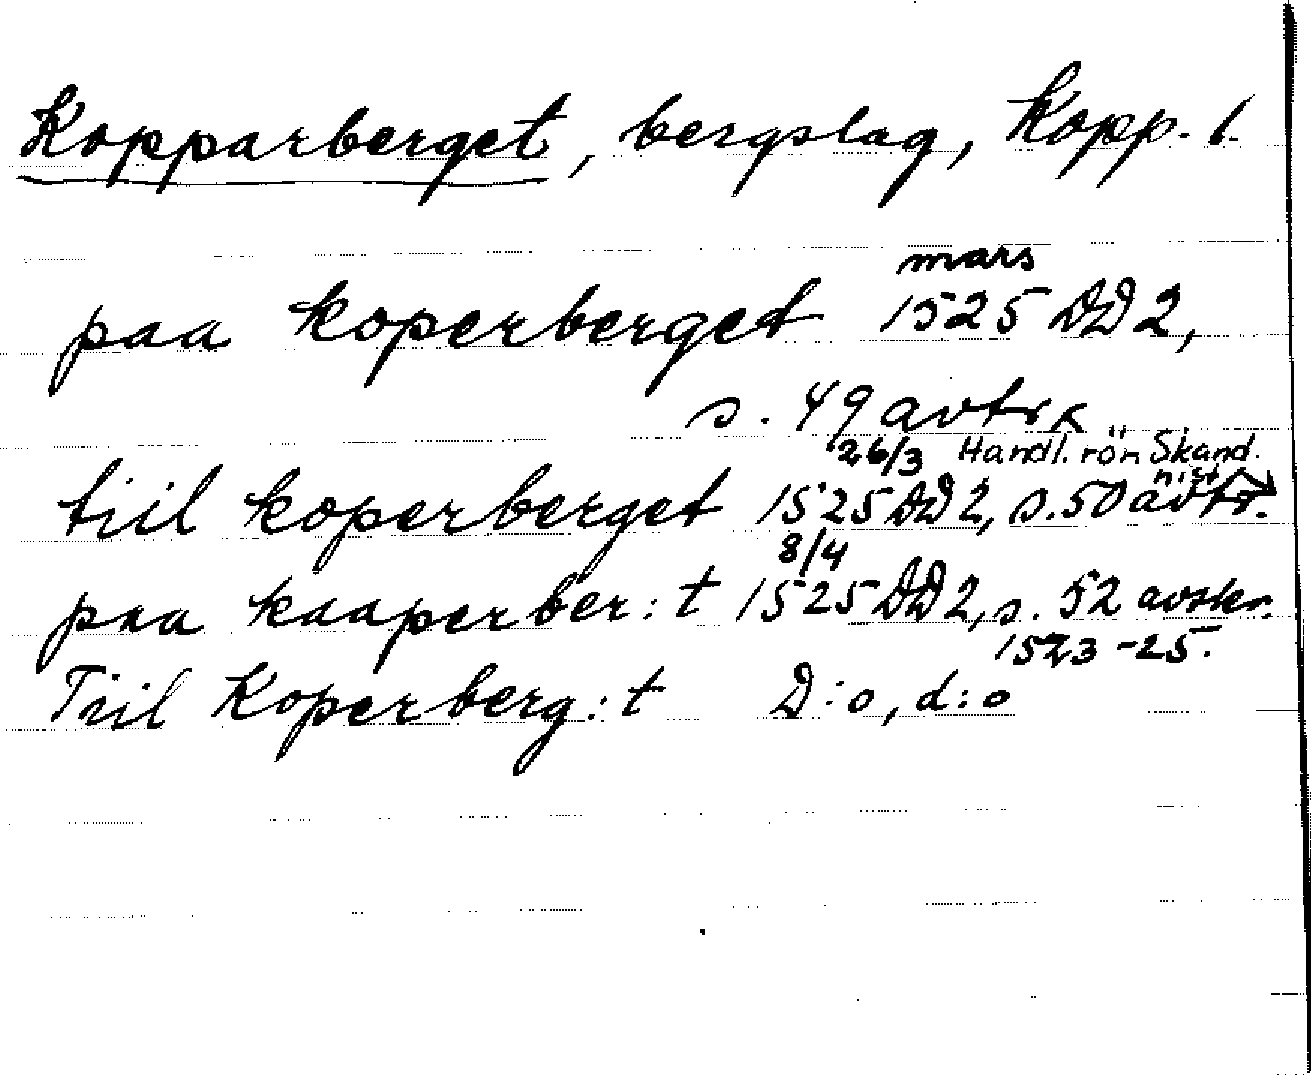 Kopparberget, bergslag, Kopp. l.
mars
paa koperberget 1525 DD 2,
s. 49 avtr
26/3 Handl. rör. Skand. hist.
tiil koperberget 1525 DD 2, s. 50 avtr.
8/4
paa kaaperber:t 1525 DD 2, s. 52 avskr.
1523-25.
Tiil Koperberg:t D:o, d:o